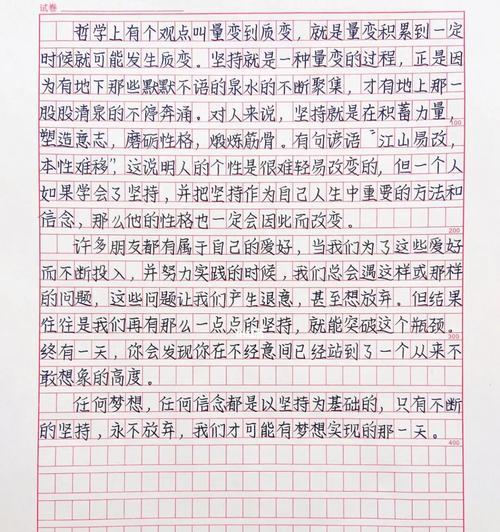 试卷
哲学上有个观点叫量变到质变，就是量变积累到一定
时候就可能发生质变。坚持就是一种量变的过程，正是因
为有地下那些默默不语的泉水的不断聚集，才有地上那一
股股清泉的不停奔涌。对人来说，坚持就是在积蓄力量，
100
塑造意志，磨砺性格，煅炼筋骨。有句谚语“江山易改，
本性难移”，这说明人的个性是很难轻易改变的，但一个人
如果学会了坚持，并把坚持作为自己人生中重要的方法和
信念，那么他的性格也一定会因此而改变。
200
许多朋友都有属于自己的爱好，当我们为了这些爱好
而不断投入，并努力实践的时候，我们总会遇这样或那样
的问题，这些问题让我们产生退意，甚至想放弃。但结果
往往是我们再有那么一点点的坚持，就能突破这个瓶颈。
300
终有一天，你会发现你在不经意间已经站到了一个从来不
敢想象的高度。
任何梦想，任何信念都是以坚持为基础的，只有不断
的坚持，永不放弃，我们才可能有梦想实现的那一天。
400